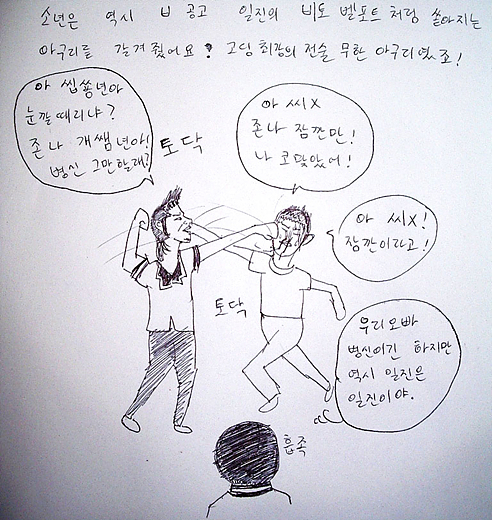 소년은 역시 ㅂ공고 일진의 비토 벨포트 처럼 쏟아지는
아구리를 갈겨 줬어요? 고딩 최강의 전술 무한 아구리였죠!
아 씹쓩년아
눈깔 때리냐?
존나 개쌤년아!
병신 그만할래?
토닥
아 씨X
존나 잠깐만!
나 코맞았어!
아 씨X!
잠깐이라고!
토닥
우리오빠
병신이긴 하지만
역시 일진은
일진이야.
흡족